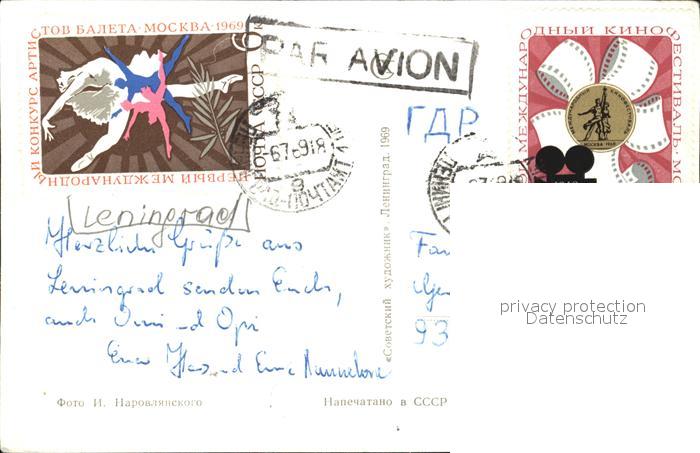 ПЕРВЫЙ МЕЖДУНАРОДНЫЙ КОНКУРС АРТИСТОВ БАЛЕТА · МОСКВА · 1969
6 к
ПОЧТА СССР
PAR AVION
МЕЖДУНАРОДНЫЙ КИНОФЕСТИВАЛЬ · МО
МОСКВА 1969
ГДР
Leningrad
Herzliche Grüße aus
Leningrad senden Euch,
auch Omi u-d Opi
Eure
93
privacy protection
Datenschutz
«Советский художник». Ленинград. 1969
Фото И. Наровлянского
Напечатано в СССР